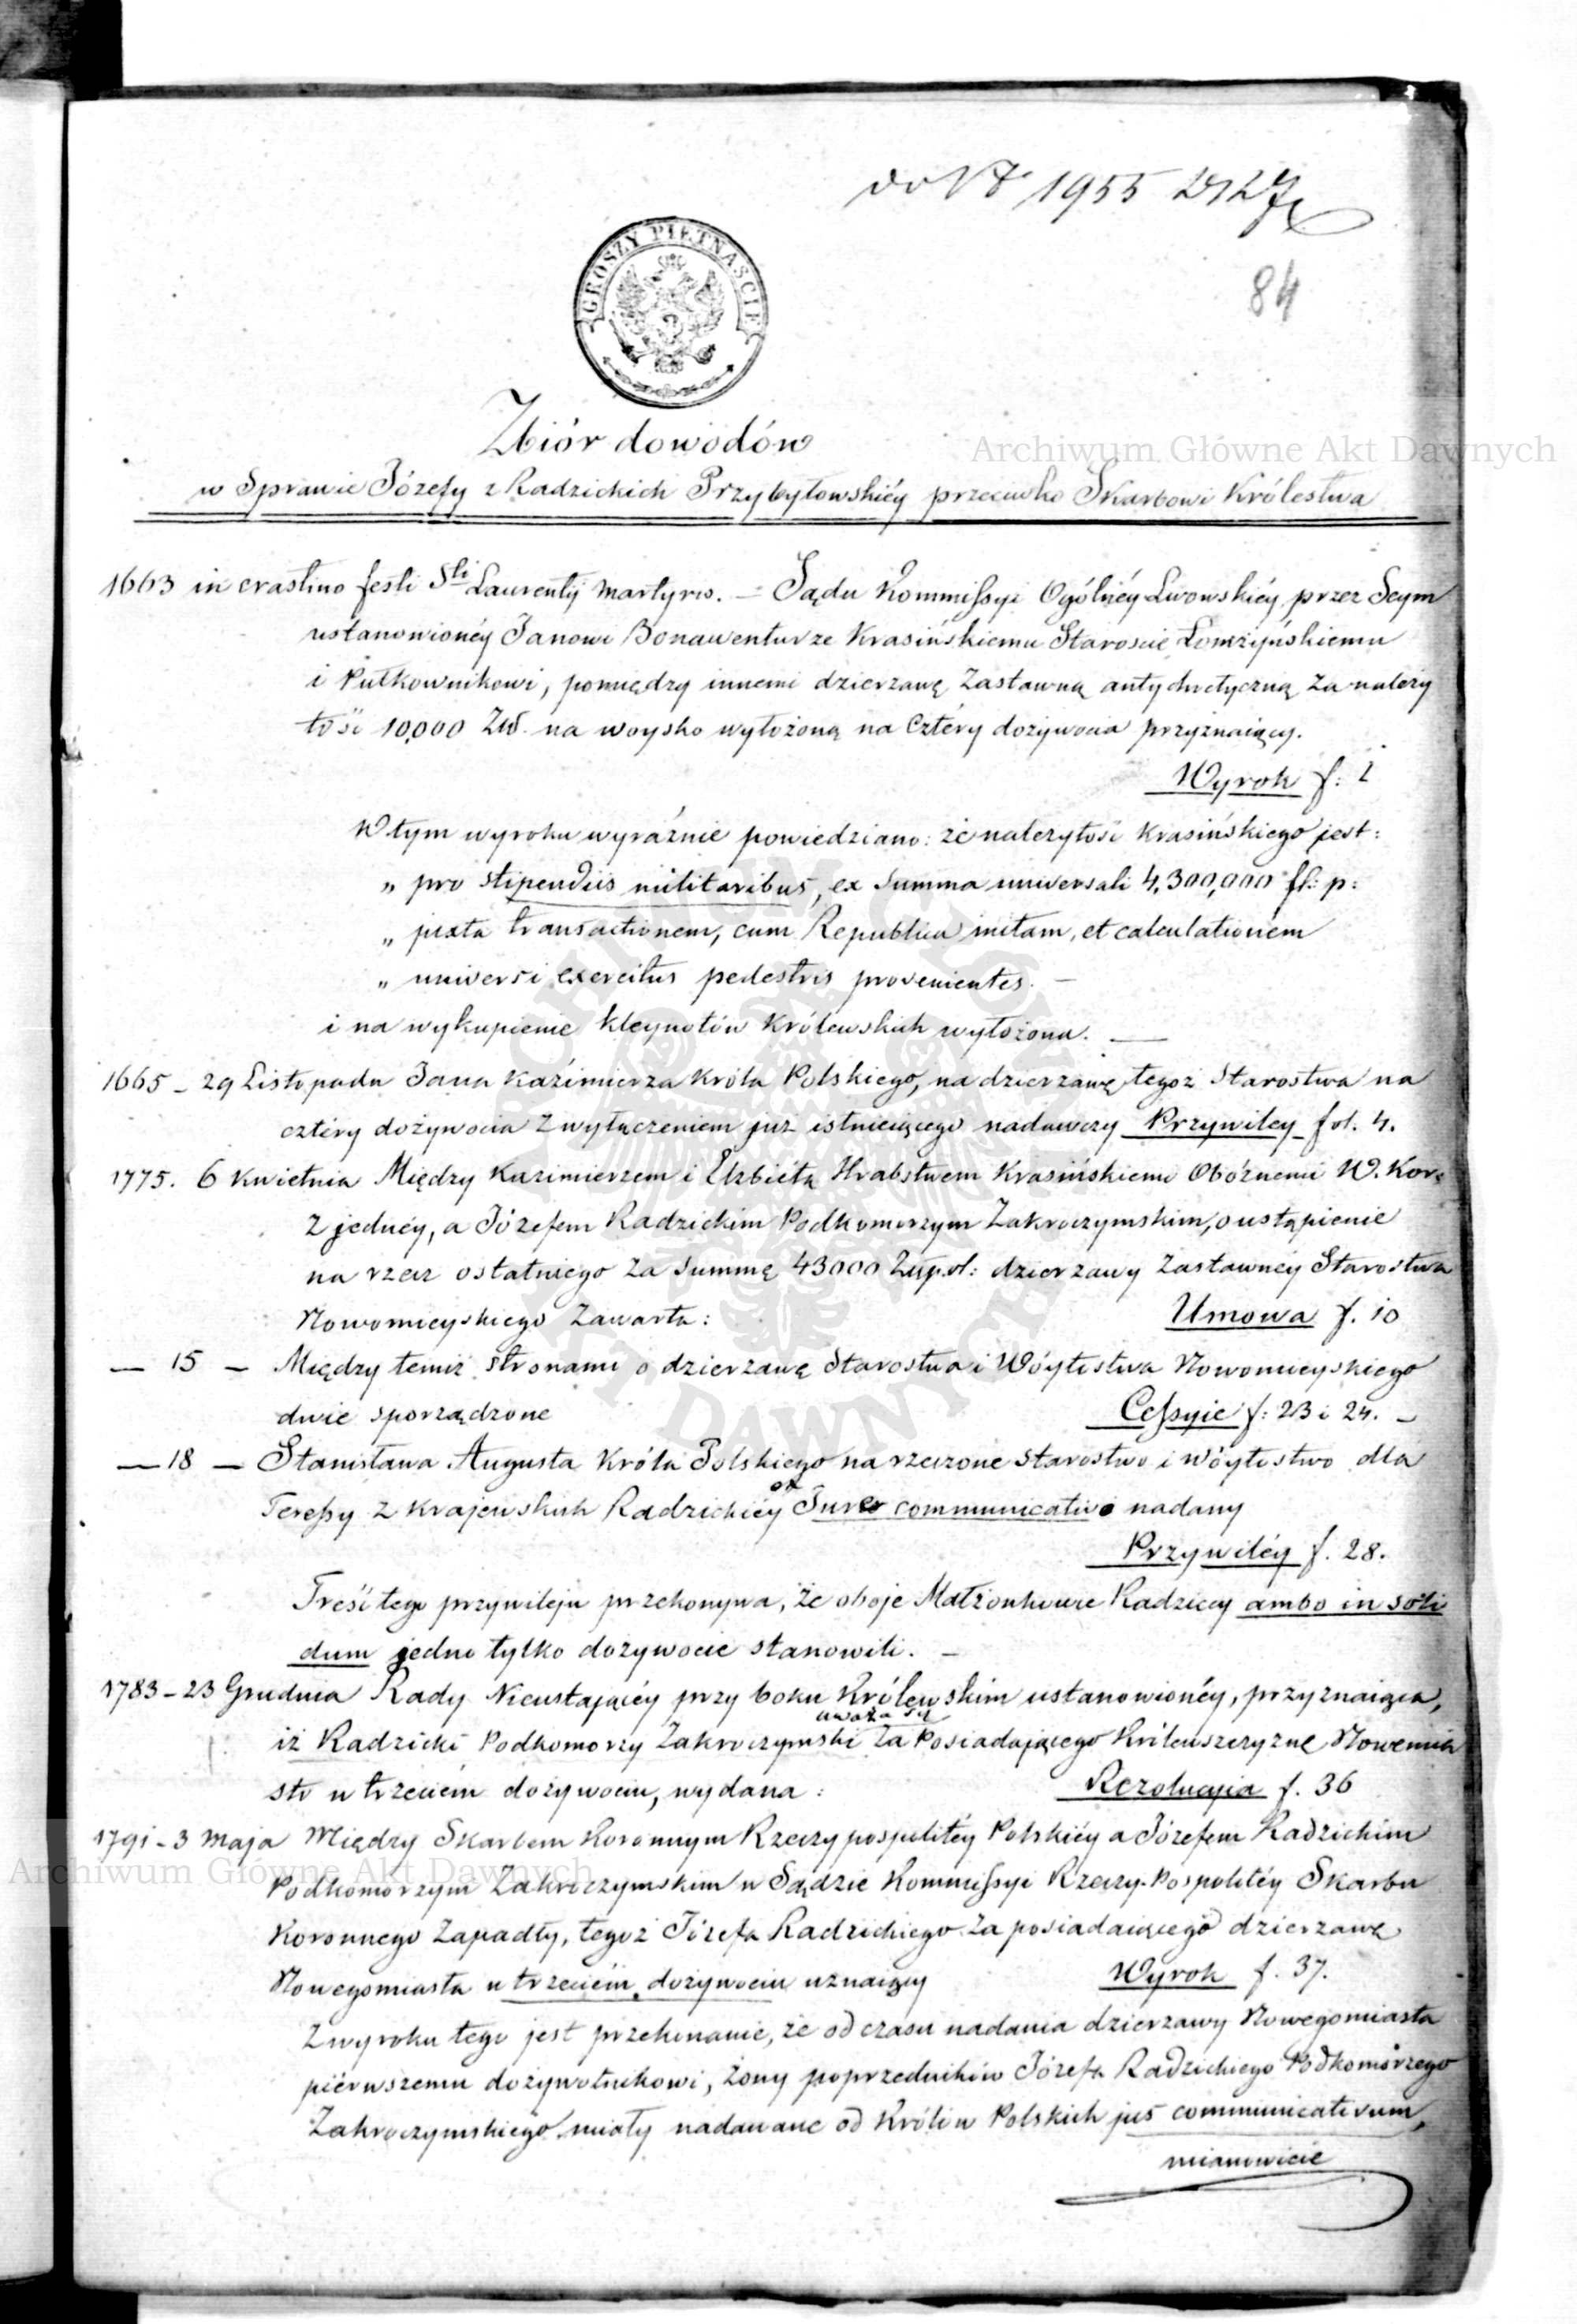 1955
84
GROSZY PIĘTNAŚCIE
Zbiór dowodów
w Sprawie Józefy z Radzickich Przybyłowskiéy przeciwko Skarbowi Królestwa
1663 in crastino festi Sti Laurentij Martyris. — Sądu Kommissyi Ogólnéy Lwowskiéy przez Seym
ustanowionéy Janowi Bonawenturze Krasińskiemu Staroscie Łomżyńskiemu
i Pułkownikowi, pomiędzy innemi dzierzawę Zastawną antychretyczną za należy
tość 10,000 Złł. na woysko wyłożoną na Cztéry dożywocia przyznaiący.
Wyrok f: 1
W tym wyroku wyraźnie powiedziano: że należytość Krasińskiego jest:
„ pro stipendiis militaribus, ex Summa universali 4,300,000 fl: p:
„ juxta transactionem, cum Republica initam, et calculationem
„ universi exercitus pedestris provenientes. —
i na wykupienie kleynotów Królewskich wyłożona. —
1665 – 29 Listopada Jana Kaźimierza Króla Polskiego, na dzierzawę tegoż Starostwa na
cztéry dożywocia z wyłączeniem już istnieiącego nadawczy Przywiley fol. 4.
1775. 6 Kwietnia Między Kazimierzem i Elżbiétą Hrabstwem Krasińskiemi Oboźnemi W. Kor:
z jednéy, a Józefem Radzickim Podkomorzym Zakroczymskim, o ustąpienie
na rzecz ostatniego za Summę 43000 Złp.ol: dzierzawy Zastawnéy Starostwa
Nowomieyskiego Zawarta: Umowa f. 10
— 15 — Między temiż stronami o dzierzawę Starostwa i Wóytostwa Nowomieyskiego
dwie sporządzone Cessyie f: 23 i 24. —
— 18 — Stanisława Augusta Króla Polskiego na rzeczone Starostwo i Wóytostwo dla
Teressy z Krajewskich Radzickiéy ex Jure communicativo nadany
Przywiléy f. 28.
Treść tego przywileju przekonywa, że oboje Małżonkowie Radziccy ambo in soli
dum jedno tylko dożywocie stanowili. —
1783 – 23 Grudnia Rady Nieustającéy przy boku Królewskim ustanowionéy, przyznaiąca,
iż Radzicki Podkomorzy Zakroczymski uważa się za Posiadającego Królewszczyznę Nowemia
sto w trzeciém dożywociu, wydana: Rezolucyia f. 36
1791 – 3 Maja Między Skarbem Koronnym Rzeczypospolitéy Polskiéy a Józefem Radzickim
Podkomorzym Zakroczymskim w Sądzie Kommissyi Rzeczy-Pospolitéy Skarbu
Koronnego Zapadły, tegoż Józefa Radzickiego za posiadaiącego dzierzawę
Nowegomiasta w trzeciém dożywociu uznaiący Wyrok f. 37.
Z wyroku tego jest przekonanie, że od czasu nadania dzierzawy Nowegomiasta
piérwszemu dożywotnikowi, żony poprzedników Józefa Radzickiego Podkomorzego
Zakroczymskiego miały nadawane od Królów Polskich jus communicativum,
mianowicie
Archiwum Główne Akt Dawnych
Archiwum Główne Akt Dawnych